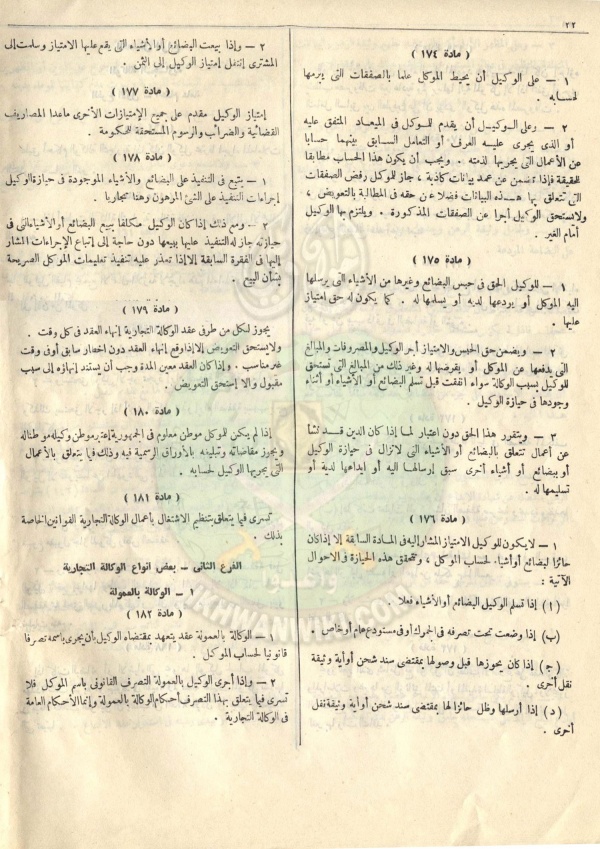 ٢٢
( مادة ١٧٤ )
١ – على الوكيل أن يحيط الموكل علما بالصفقات التى يبرمها
لحسابه .
٢ – وعلى الوكيل أن يقدم للموكل فى الميعاد المتفق عليه
أو الذى يجرى عليه العرف أو التعامل السابق بينهما حسابا
عن الأعمال التى يجريها لذمته . ويجب أن يكون هذا الحساب مطابقا
للحقيقة فإذا تضمن عن عمد بيانات كاذبة ، جاز للموكل رفض الصفقات
التى تتعلق بها هذه البيانات فضلا عن حقه فى المطالبة بالتعويض ،
ولايستحق الوكيل أجرا عن الصفقات المذكورة . ويلتزم بها الوكيل
أمام الغير .
( مادة ١٧٥ )
١ – للوكيل الحق فى حبس البضائع وغيرها من الأشياء التى يرسلها
اليه الموكل أو يودعها لديه أو يسلمها له . كما يكون له حق امتياز
عليها .
٢ – ويضمن حق الحبس والامتياز أجر الوكيل والمصروفات والمبالغ
التى يدفعها عن الموكل أو يقرضها له وغير ذلك من المبالغ التى تستحق
للوكيل بسبب الوكالة سواء انفقت قبل تسلم البضائع أو الأشياء أو أثناء
وجودها فى حيازة الوكيل .
٣ – ويتقرر هذا الحق دون اعتبار لما إذا كان الدين قد نشأ
عن أعمال تتعلق بالبضائع أو الأشياء التى لاتزال فى حيازة الوكيل
أو ببضائع أو أشياء أخرى سبق إرسالها اليه أو ايداعها لدية أو
تسليمها له .
( مادة ١٧٦ )
١ – لايكون للوكيل الامتياز المشار إليه فى المادة السابقة إلا إذا كان
حائزا لبضائع أو أشياء لحساب الموكل ، وتتحقق هذه الحيازة فى الاحوال
الآتية :
( ا ) إذا تسلم الوكيل البضائع أو الأشياء فعلا .
(ب) إذا وضعت تحت تصرفه فى الجمرك أو فى مستودع عام أو خاص .
( ج ) إذا كان يحوزها قبل وصولها بمقتضى سند شحن أو أية وثيقة
نقل أخرى .
( د ) إذا أرسلها وظل حائزا لها بمقتضى سند شحن أو أية وثيقة نقل
أخرى .
٢ – وإذا بيعت البضائع أو الأشياء التى يقع عليها الامتياز وسلمت إلى
المشترى إنتقل إمتياز الوكيل إلى الثمن .
( مادة ١٧٧ )
إمتياز الوكيل مقدم على جميع الإمتيازات الأخرى ماعدا المصاريف
القضائية والضرائب والرسوم المستحقة للحكومة .
( مادة ١٧٨ )
١ – يتبع فى التنفيذ على البضائع والأشياء الموجودة فى حيازة الوكيل
إجراءات التنفيذ على الشئ المرهون رهنا تجاريا .
٢ – ومع ذلك إذا كان الوكيل مكلفا ببيع البضائع أو الأشياء التى فى
حيازته جاز له التنفيذ عليها ببيعها دون حاجة إلى إتباع الإجراءات المشار
إليها فى الفقرة السابقة إلا إذا تعذر عليه تنفيذ تعليمات الموكل الصريحة
بشأن البيع .
( مادة ١٧٩ )
يجوز لكل من طرفى عقد الوكالة التجارية إنهاء العقد فى كل وقت .
ولايستحق التعويض إلا إذا وقع إنهاء العقد دون اخطار سابق أو فى وقت
غير مناسب . وإذا كان العقد معين المدة وجب أن يستند إنهاؤه إلى سبب
مقبول وإلا إستحق التعويض .
( مادة ١٨٠ )
إذا لم يكن للموكل موطن معلوم فى الجمهورية إعتبر موطن وكيله موطنا له
ويجوز مقاضاته وتبليغه بالأوراق الرسمية فيه وذلك فيما يتعلق بالأعمال
التى يجريها الوكيل لحسابه .
( مادة ١٨١ )
تسرى فيما يتعلق بتنظيم الاشتغال بأعمال الوكالة التجارية القوانين الخاصة
بذلك .
الفرع الثانى – بعض انواع الوكالة التجارية
١ – الوكالة بالعمولة
( مادة ١٨٢ )
١ – الوكالة بالعمولة عقد يتعهد بمقتضاه الوكيل بأن يجرى باسمه تصرفا
قانونيا لحساب الموكل .
٢ – وإذا أجرى الوكيل بالعمولة التصرف القانونى باسم الموكل فلا
تسرى فيما يتعلق بهذا التصرف أحكام الوكالة بالعمولة وإنما الأحكام العامة
فى الوكالة التجارية .
وأعدوا
IKHWANWIKI.COM